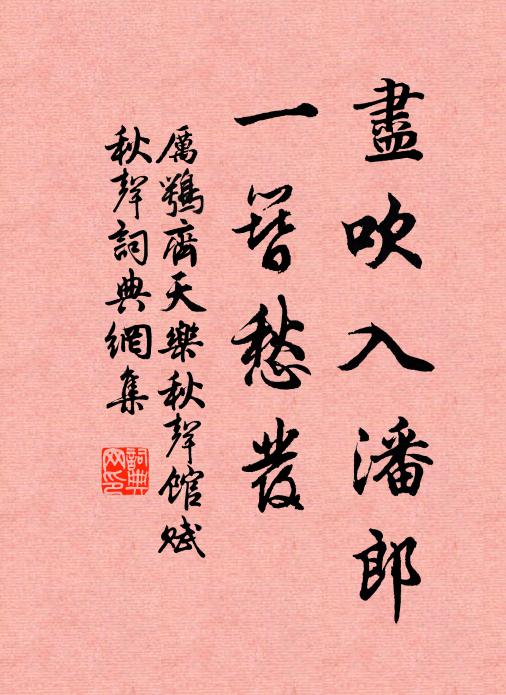 盡吹入潘郎
一簪愁發
厲鶚齊天樂秋聲館賦
秋聲詞典網集
詞典
网印